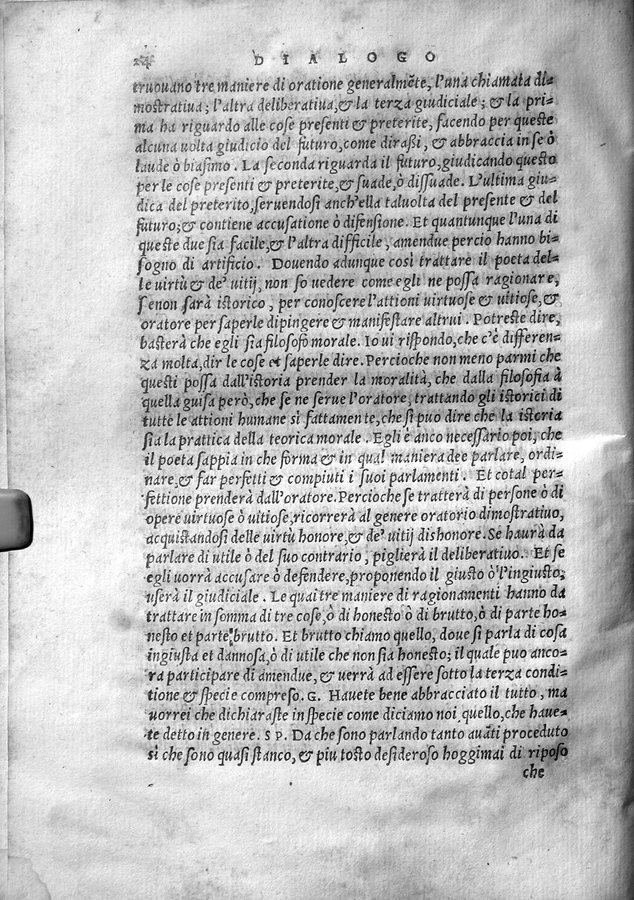 24 DIALOGO
truouano tre maniere di oratione generalmẽte, l'una chiamata di=
mostratiua; l'altra deliberatiua, & la terza giudiciale; & la pri=
ma ha riguardo alle cose presenti & preterite, facendo per queste
alcuna uolta giudicio del futuro, come dirassi, & abbraccia in se ò
laude ò biasimo. La seconda riguarda il futuro, giudicando questo
per le cose presenti & preterite, & suade, ò dissuade. L'ultima giu=
dica del preterito, seruendosi anch'ella taluolta del presente & del
futuro; & contiene accusatione ò difensione. Et quantunque l'una di
queste due sia facile, & l'altra difficile, amendue percio hanno bi=
sogno di artificio. Douendo adunque così trattare il poeta del=
le uirtù & de' uitij, non so uedere come egli ne possa ragionare,
se non sarà istorico, per conoscere l'attioni uirtuose & uitiose, &
oratore per saperle dipingere & manifestare altrui. Potreste dire,
basterà che egli sia filosofo morale. Io ui rispondo, che c'è differen=
za molta, dir le cose et saperle dire. Percioche non meno parmi che
questi possa dall'istoria prender la moralità, che dalla filosofia à
quella guisa però, che se ne serue l'oratore, trattando gli istorici di
tutte le attioni humane sì fattamente, che si puo dire che la istoria
sia la prattica della teorica morale. Egli è anco necessario poi, che
il poeta sappia in che forma & in qual maniera dee parlare, ordi=
nare, & far perfetti & compiuti i suoi parlamenti. Et cotal per=
fettione prenderà dall'oratore. Percioche se tratterà di persone ò di
opere uirtuose ò uitiose, ricorrerà al genere oratorio dimostratiuo,
acquistandosi delle uirtù honore, & de' uitij dishonore. Se haurà da
parlare di utile ò del suo contrario, piglierà il deliberatiuo. Et se
egli uorrà accusare ò defendere, proponendo il giusto ò l'ingiusto;
userà il giudiciale. Le quai tre maniere di ragionamenti hanno da
trattare in somma di tre cose, ò di honesto ò di brutto, ò di parte ho=
nesto et parte brutto. Et brutto chiamo quello, doue si parla di cosa
ingiusta et dannosa, ò di utile che non sia honesto; il quale puo anco=
ra participare di amendue, & uerrà ad essere sotto la terza condi=
tione & specie compreso. G. Hauete bene abbracciato il tutto, ma
uorrei che dichiaraste in specie come diciamo noi, quello, che haue=
te detto in genere. SP. Da che sono parlando tanto auãti proceduto
sì che sono quasi stanco, & piu tosto desideroso hoggimai di riposo
che